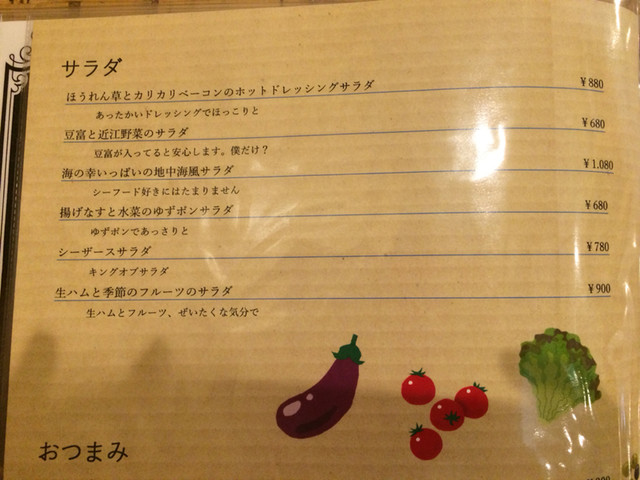 サラダ
ほうれん草とカリカリベーコンのホットドレッシングサラダ ¥880
あったかいドレッシングでほっこりと
豆富と近江野菜のサラダ ¥680
豆富が入ってると安心します。僕だけ？
海の幸いっぱいの地中海風サラダ ¥1.080
シーフード好きにはたまりません
揚げなすと水菜のゆずポンサラダ ¥680
ゆずポンであっさりと
シーザースサラダ ¥780
キングオブサラダ
生ハムと季節のフルーツのサラダ ¥900
生ハムとフルーツ、ぜいたくな気分で
おつまみ